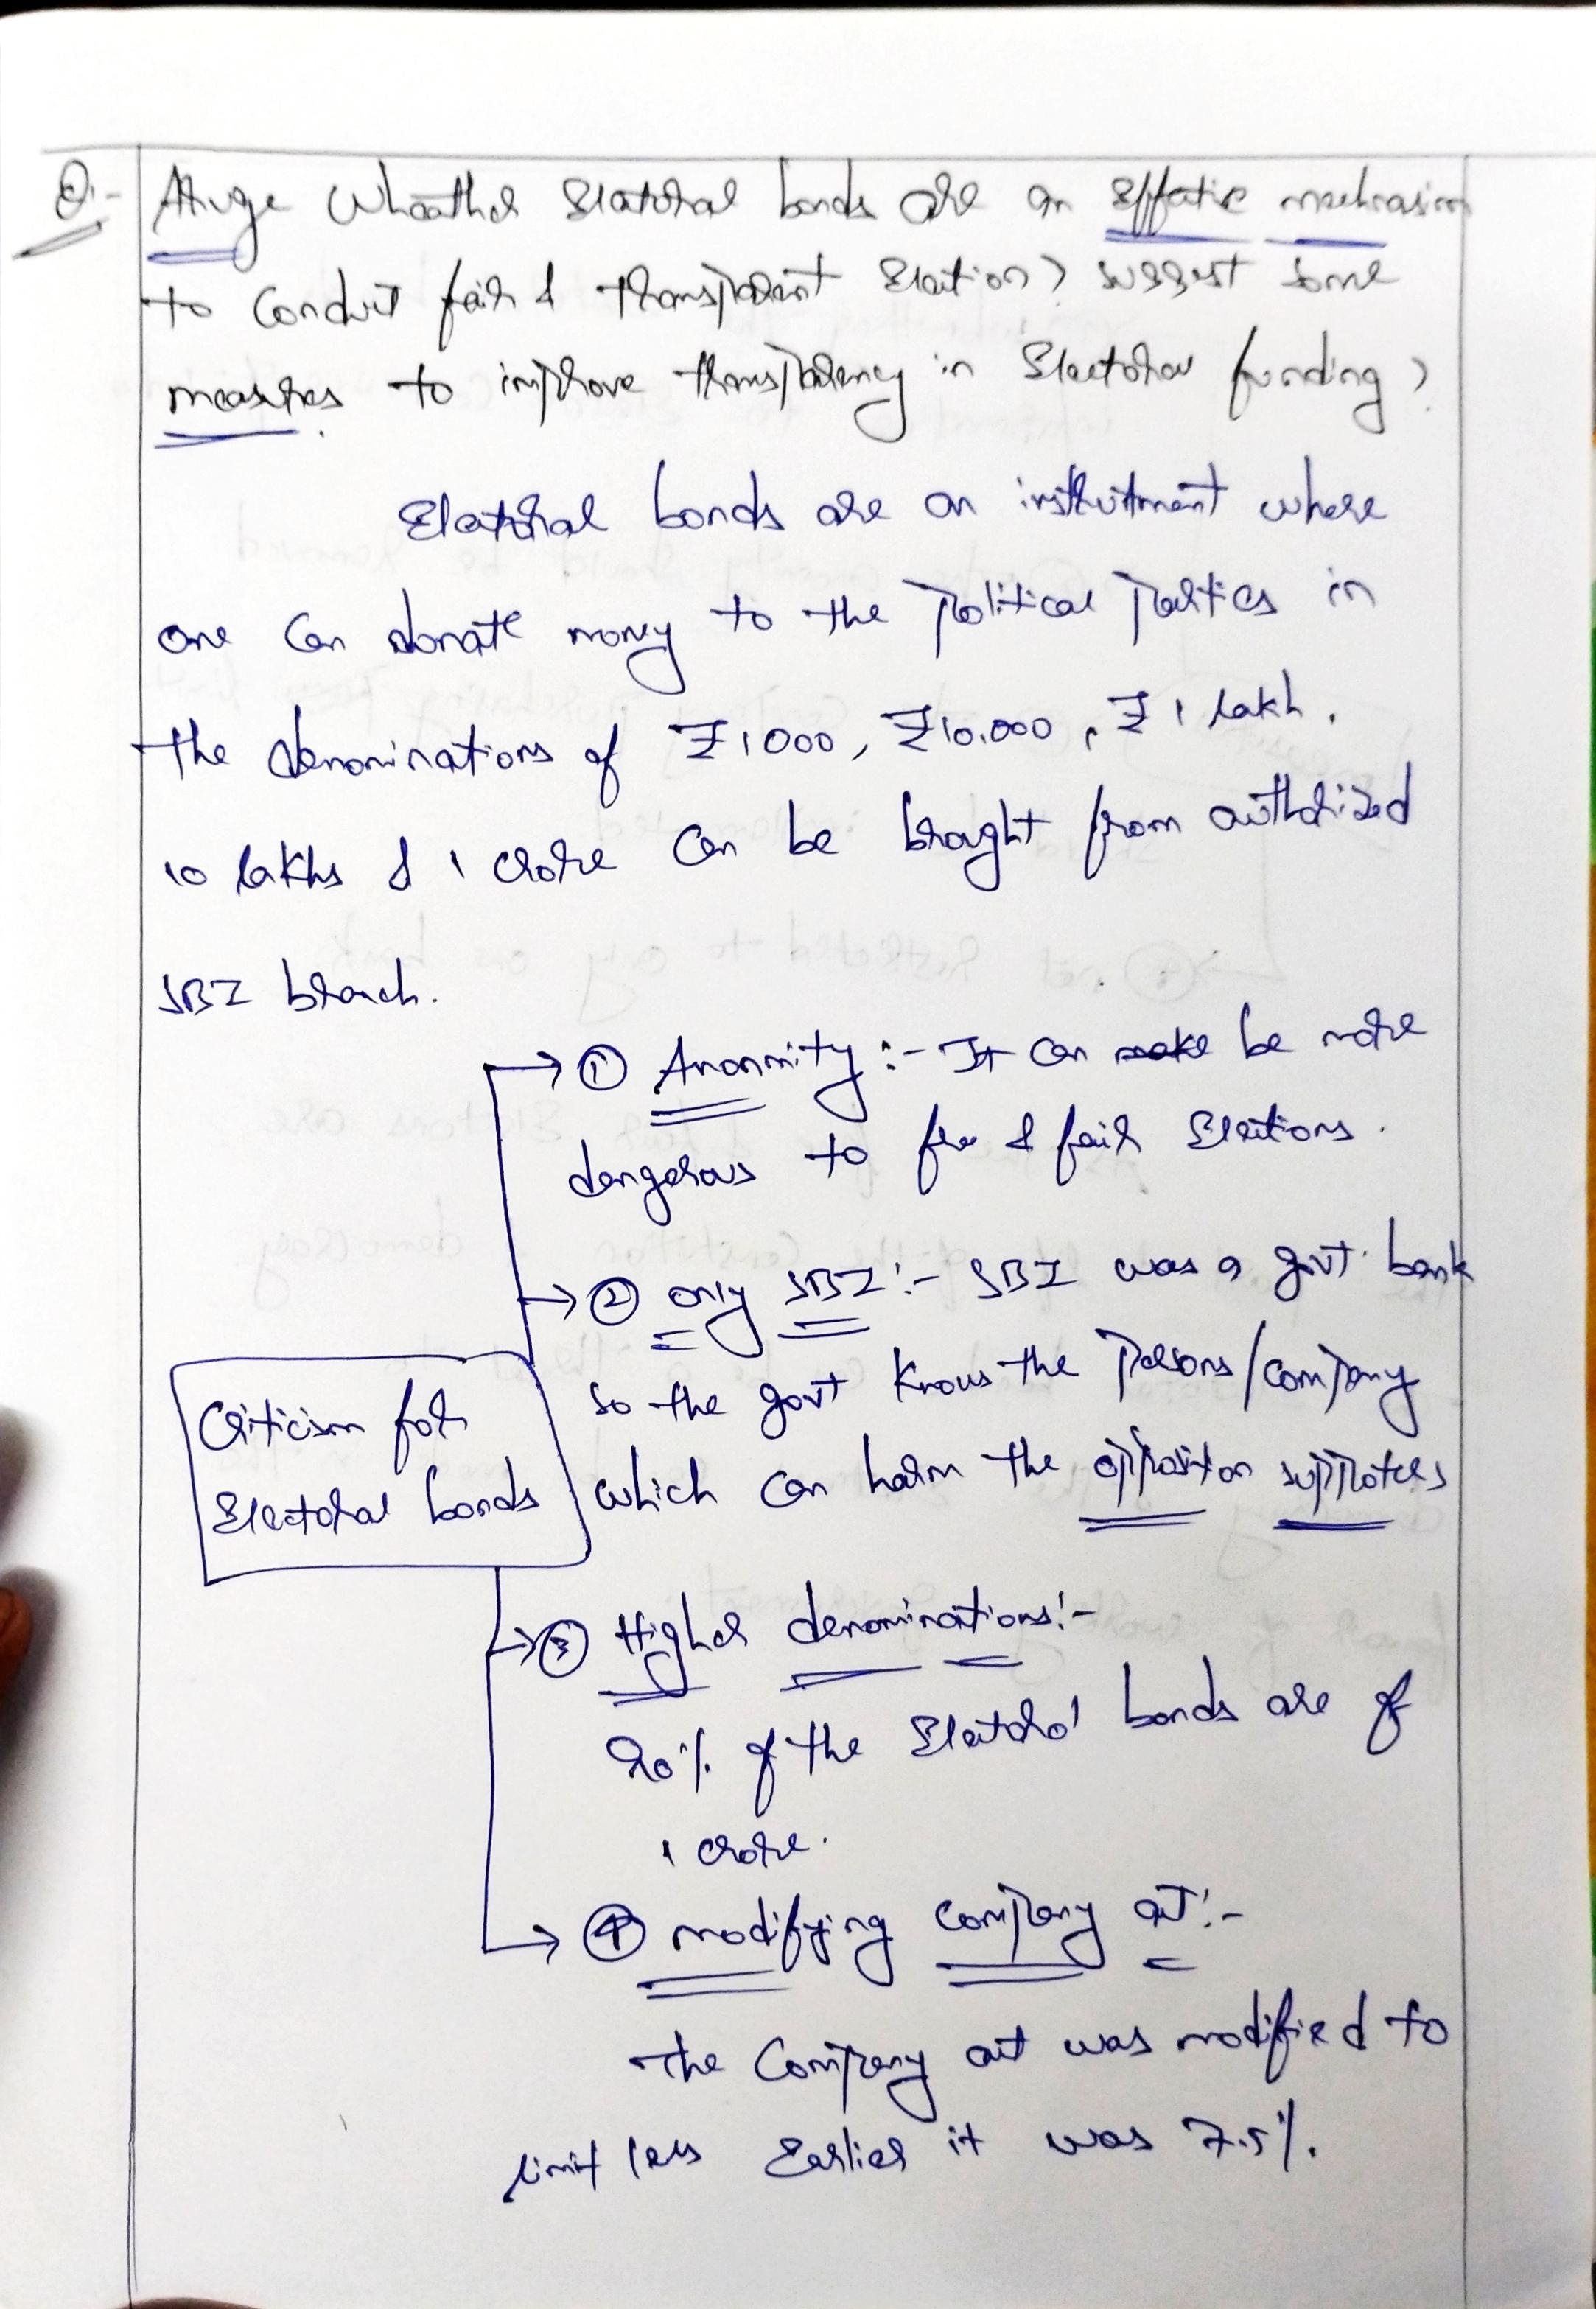 Q:- Aruge Wheather Elatoral bonds are an Effative mechnasim
to Conduct fair & transparent Election? suggest some
measures to improve transparency in Electoral funding?
Elatoral bonds are an instrutment where
one Can donate money to the Political Parties in
the denominations of ₹1000, ₹10,000, ₹1 lakh,
10 lakhs & 1 crore Can be brought from authorized
SBI branch.
→ ① Anonmity:- It Can be more
dangerous to free & fair Elections.
→ ② only SBI:- SBI was a govt. bank
so the govt Knows the Persons/company
which Can harm the opposition supproters
Criticism for
Electoral bonds
→ ③ Higher denominations:-
90% of the Electoral bonds are of
1 crore.
→ ④ modifying company act:-
The Company act was modified to
limit less Earlier it was 7.5%.